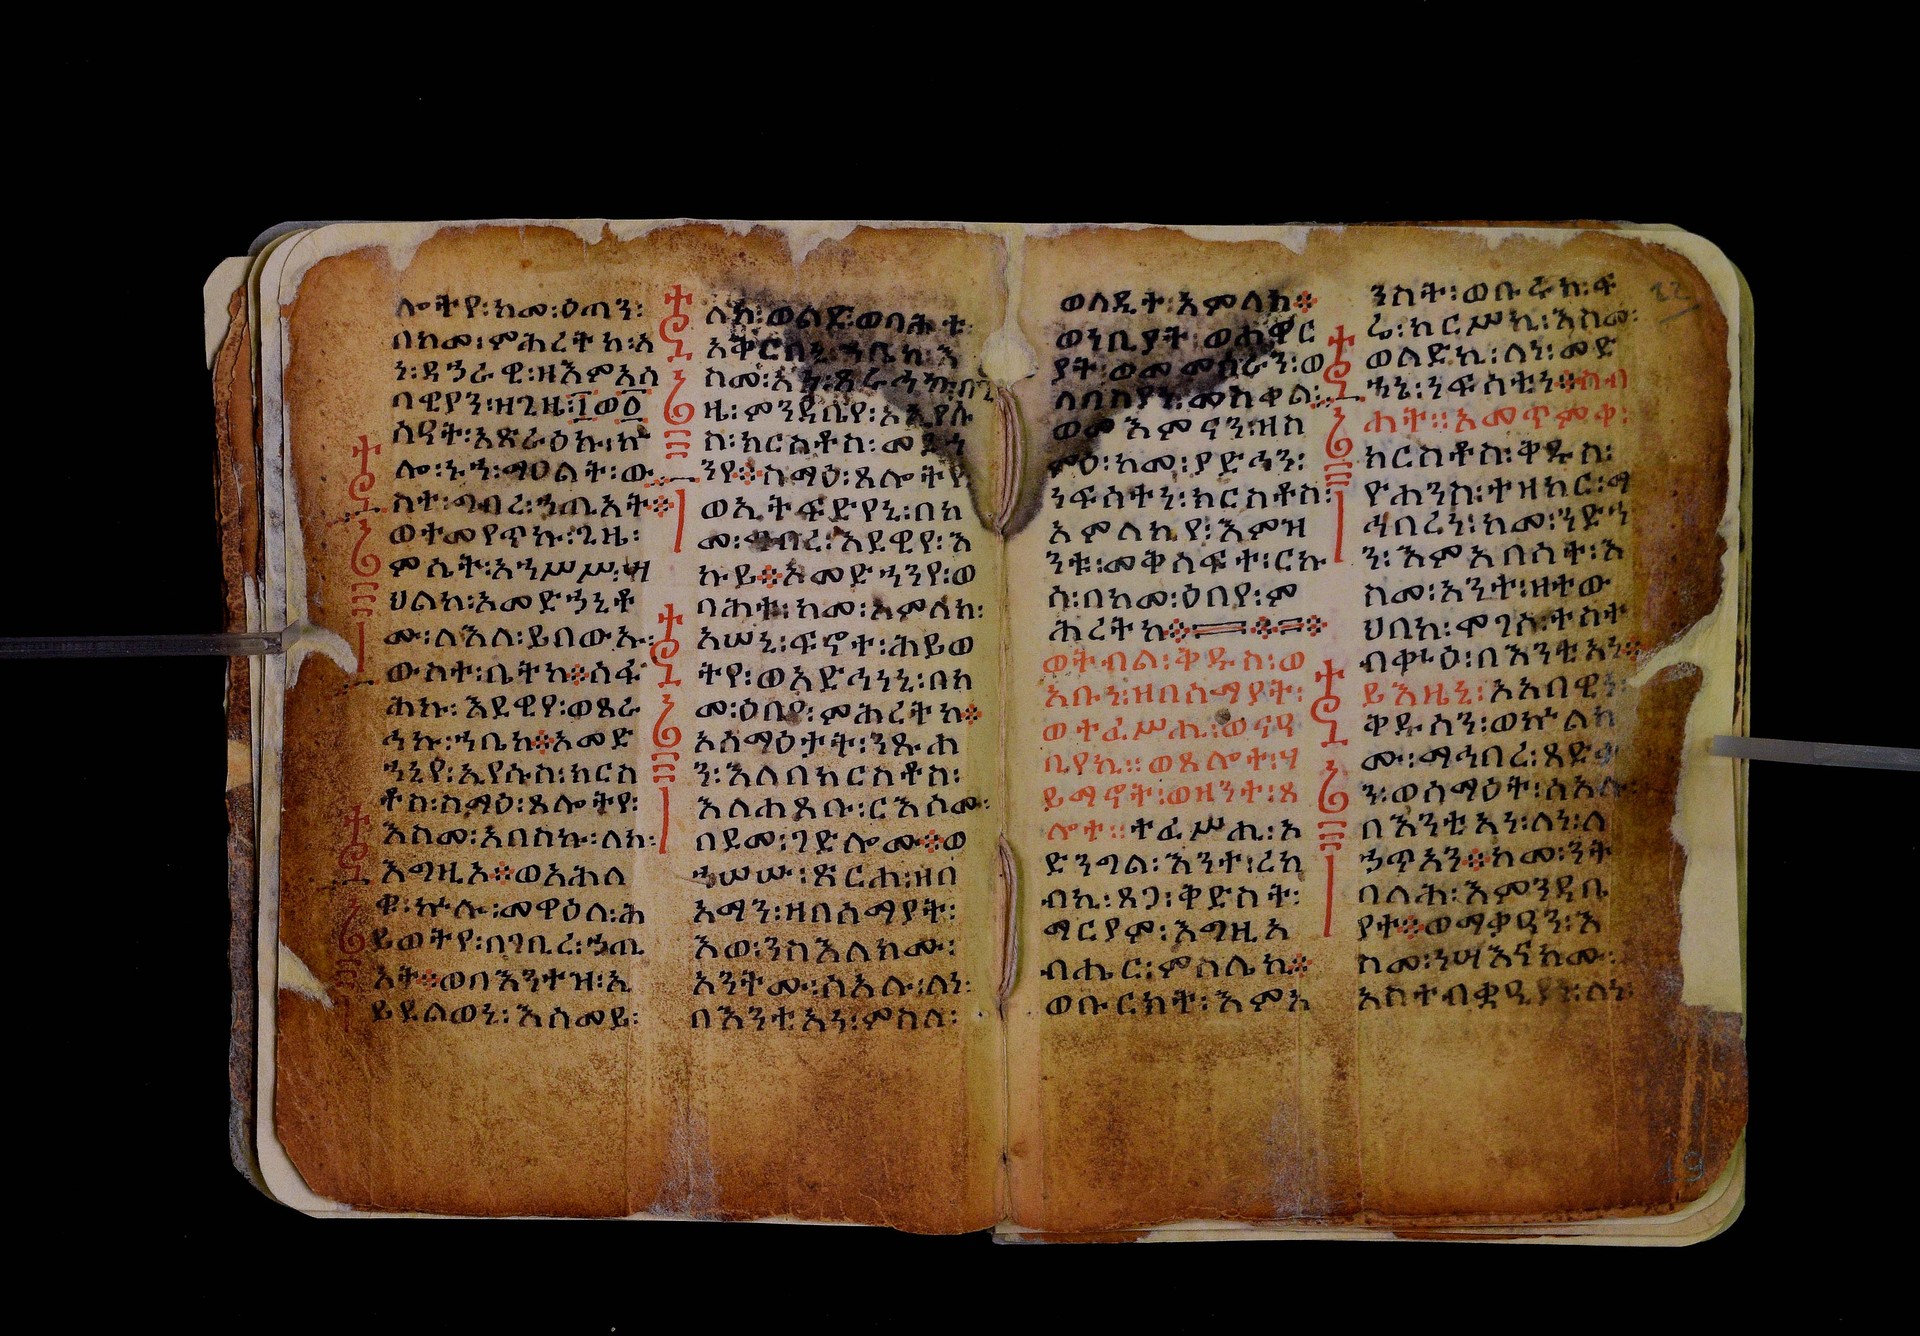 ሎትየ፡ከመ፡ዕጣን፡
በከመ፡ምሕረትከ፡አ
ባዊያን፡ዘጊዜ፡፲ወ፬
ስዓት፡አጽራዕኩ፡ኵ
ሎ፡ኑኀ፡ማዐልት፡ው
ስተ፡ግብረ፡ኀጢአት፨
ወተመየጥኩ፡ጊዜ፡
ምሴት፡አኀሥሥ፡ሣ
ህልከ፡አመድኀኒቶ
ሙ፡ለእለ፡ይበውኡ፡
ውስተ፡ቤትከ፨ሰፋ
ሕኩ፡እደዊየ፡ወጸራ
ኅኩ፡ኀቤከ፨አመድ
ኀኒየ፡ኢየሱስ፡ክርስ
ቶስ፡ስማዕ፡ጸሎትየ፡
እስመ፡አበስኩ፡ለከ፡
እግዚኦ፨ወአሕለ
ቁ፡ኵሉ፡መዋዕለ፡ሕ
ይወትየ፡በገቢረ፡ኃጢ
አት፨ወበእንተዝ፡ኢ
ይደልወኒ፡እስመይ፡
ለከ፡ወልደ፡ወባሕተ፡
አቅርበኒ፡ኀቤከ፡እ
ዜ፡ምንዳቤየ፡አኢየሱ
ስ፡ክርስቶስ፡መድኀ
ንየ፨ስማዕ፡ጸሎትየ
ወኢትፍድየኒ፡በከ
መ፡ግብረ፡እደዊየ፡እ
ኩይ፨አመድኀንየ፡ወ
ባሕቱ፡ከመ፡አምላክ፡
አሠኒ፡ፍኖተ፡ሕይወ
ትየ፡ወአድኅነኒ፡በከ
መ፡ዕበየ፡ምሕረትከ፨
ኦስማዕታት፡ንጹሐ
ን፡እለበክርስቶስ፡
እለሐጸቡ፡ርእሶሙ፡
በደመ፡ገድሎሙ፨ወ
ኀሠሡ፡ጽርሐ፡ዘበ
አማን፡ዘበሰማያት፡
እወ፡ንስእለክሙ፡
አንትሙ፡ሰአሉ፡ለነ፡
በእንቲአነ፡ምስለ፡
ወላዲተ፡አምላክ፨
ወነቢያት፡ወሐዋር
ያት፡ወመመህራን፡ወ
ለበስያነ፡መስቀል፡
ወመእምናን፡ዘስ
ምዕ፡ከመ፡ያድኅን፡
ነፍሳትነ፡ክርስቶስ፡
አምላክየ፡እምዝ
ንቱ፡መቅሰፍተ፡ርኩ
ስ፡በከመ፡ዕበየ፡ም
ሕረትከ፨
ወትብል፡ቅዱስ፡ወ
አቡነ፡ዘበሰማያት፡
ወተፈሥሒ፡ወናዓ
ቢየኪ፡፡ወጸሎተ፡ሃ
ይማኖት፡ወዘንተ፡ጸ
ሎተ፡፡ተፈሥሒ፡ኦ
ድንግል፡እንተ፡ረከ
ብኪ፡ጸጋ፡ቅድስት፡
ማርያም፡እግዚአ
ብሔር፡ምስሌኪ፨
ወቡርክት፡እምአ
ንስት፡ወቡሩክ፡ፍ
ሬ፡ከርሥኪ፡እስመ፡
ወልድኪ፡ለነ፡መድ
ኀኔ፡ነፍሳቲነ፨ስብ
ሐት፡፡አመጥምቀ፡
ክርስቶስ፡ቅዱስ፡
ዮሐንስ፡ተዘከር፡ማ
ኅበረነ፡ከመ፡ንድኀ
ን፡እምአበሳት፡እ
ስመ፡አንተ፡ዘተው
ህበከ፡ሞገስ፡ተስተ
ብቍዕ፡በእንቲአነ፨
ይእዜኒ፡አአበዊነ፡
ቅዱሳን፡ወኵልክ
ሙ፡ማኅበረ፡ጻድቃ
ን፡ወሰማዕት፡ሰአሉ፡
በእንቲአነ፡ለነ፡ለ
ኀጥአን፨ከመ፡ንት
ባላሕ፡እምንዳቤ
ስመ፡ንሣእናክሙ፡
19